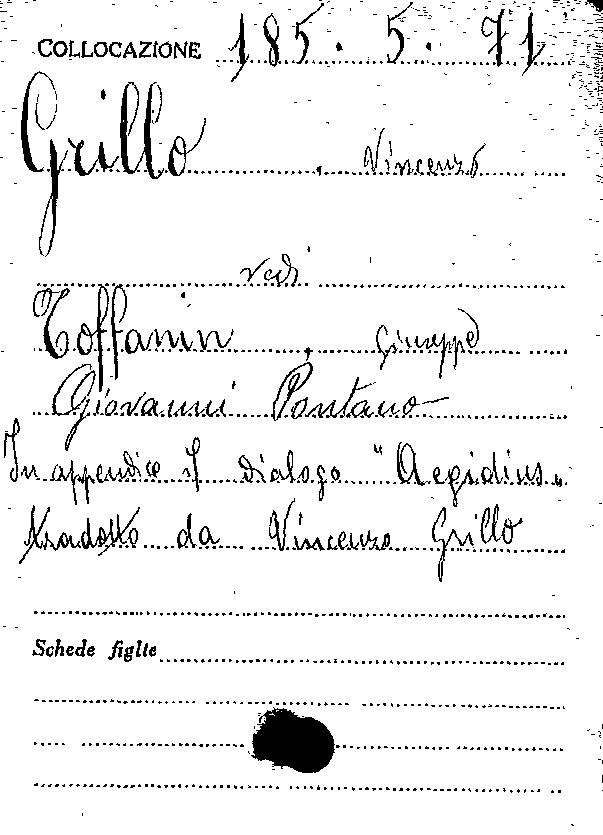 COLLOCAZIONE 185. 5. 71
Grillo, Vincenzo
vedi
Toffanin, Giuseppe
Giovanni Pontano
In appendice il dialogo "Aegidius"
tradotto da Vincenzo Grillo
Schede figlie